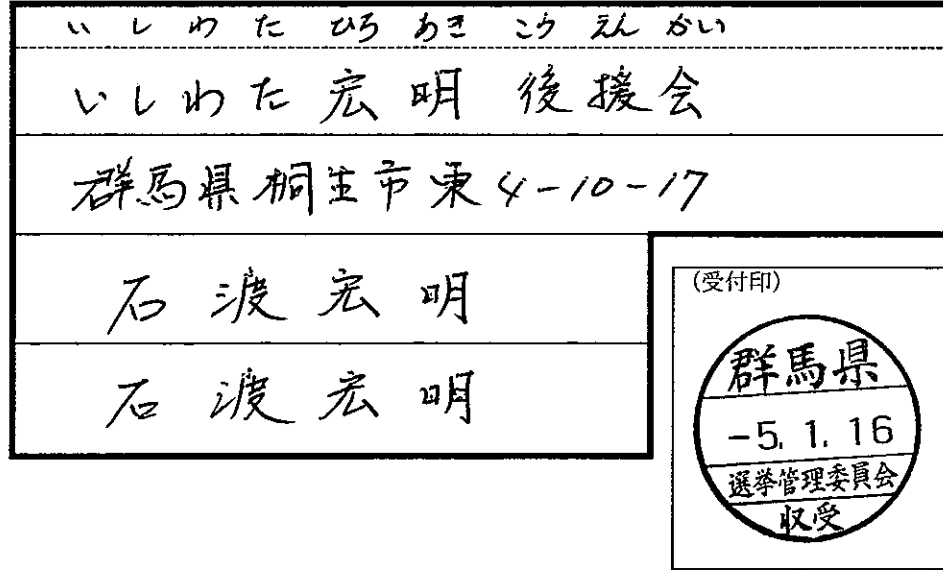 いしわた ひろ あき こう えん かい
いしわた 宏明 後援会
群馬県桐生市東4-10-17
石渡宏明
石渡宏明
(受付印)
群馬県
-5.1.16
選挙管理委員会
収受